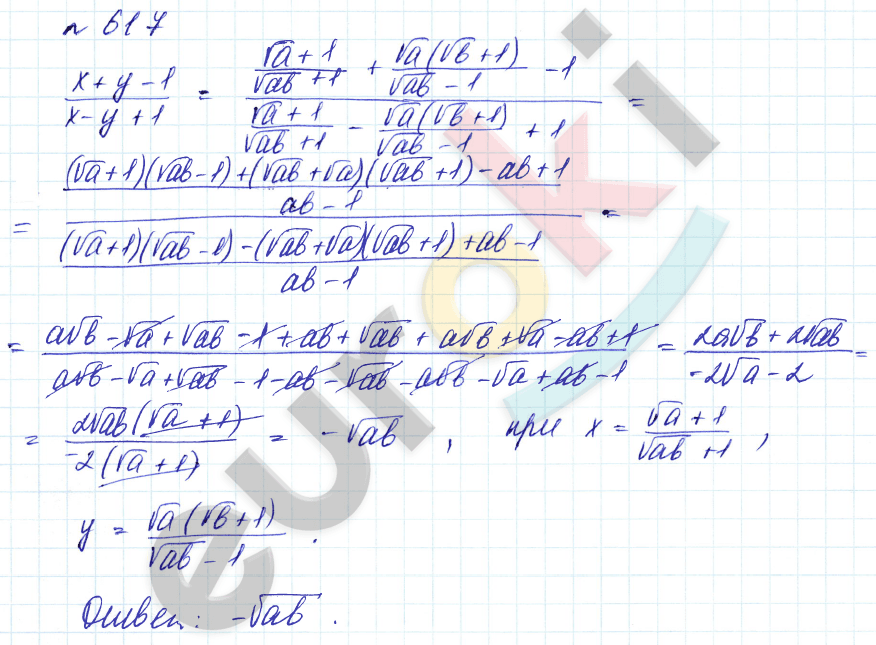 № 617
(x + y - 1)/(x - y + 1) = ((√a + 1)/(√ab + 1) + √a(√b + 1)/(√ab - 1) - 1)/((√a + 1)/(√ab + 1) - √a(√b + 1)/(√ab - 1) + 1) =
= (((√a + 1)(√ab - 1) + (√ab + √a)(√ab + 1) - ab + 1)/(ab - 1))/(((√a + 1)(√ab - 1) - (√ab + √a)(√ab + 1) + ab - 1)/(ab - 1)) =
= (a√b - √a + √ab - 1 + ab + √ab + a√b + √a - ab + 1)/(a√b - √a + √ab - 1 - ab - √ab - a√b - √a + ab - 1) = (2a√b + 2√ab)/(-2√a - 2) =
= 2√ab(√a + 1)/(-2(√a + 1)) = -√ab, при x = (√a + 1)/(√ab + 1),
y = √a(√b + 1)/(√ab - 1).
Ответ: -√ab.
euroki